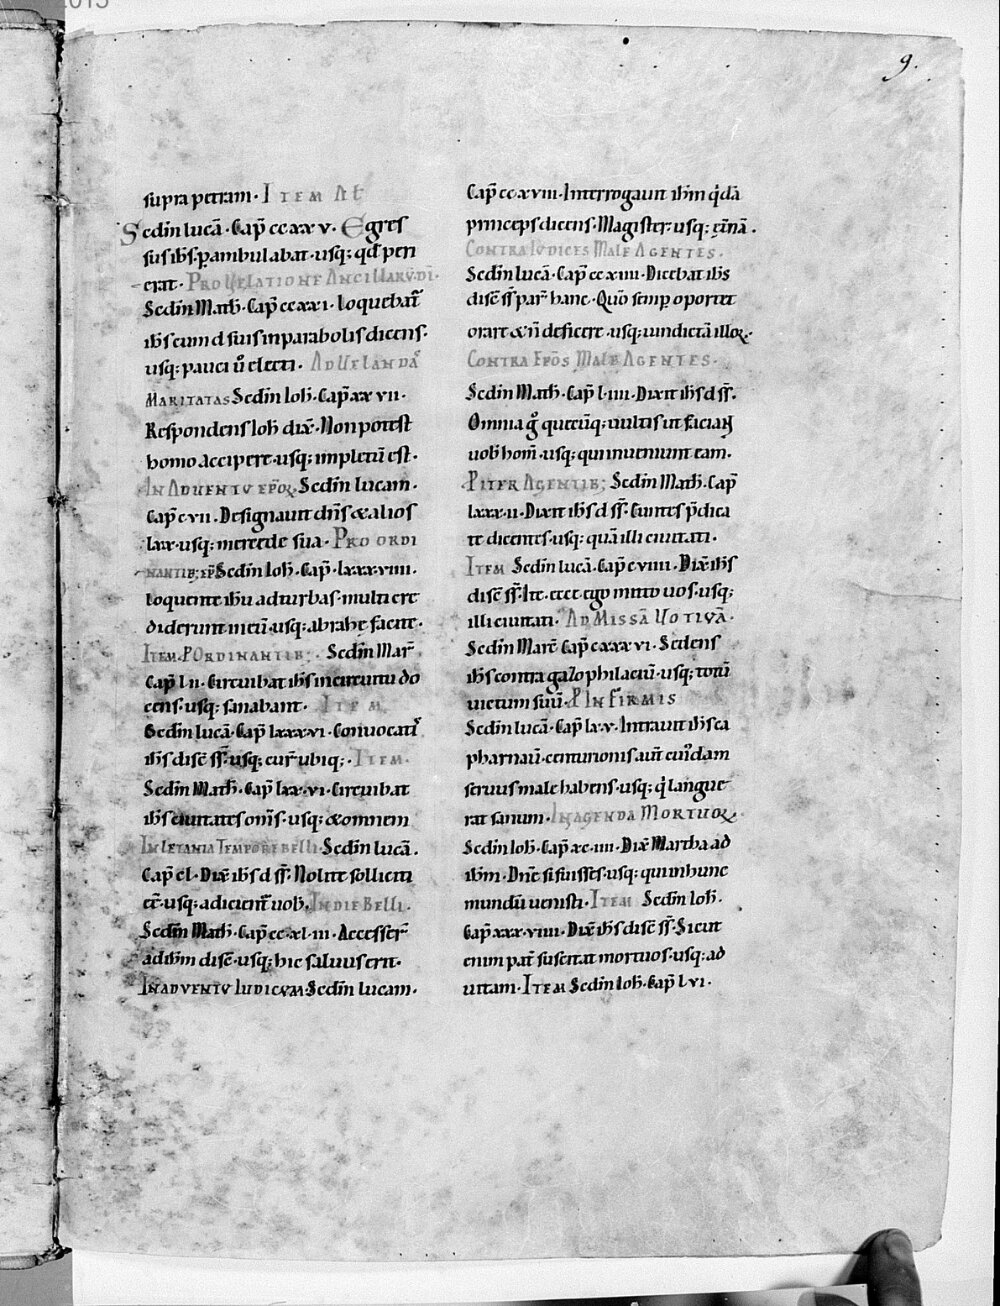 9.
supra petram· ITEM AL
Scdin lucā· Cap̄ ccxxv· Egres
sus ihs̄· p̄ambulabat· usq; qđ peri
erat· PRO VELATIONE ANCILLARŪ·DĪ·
Scdin Math̄· Cap̄ ccxxi· loquebat̄
ihs̄ cum đ suis in parabolis dicens·
usq; pauci ū electi· AD VELANDĀ
MARITATAS Scdin Ioh̄· Cap̄ xxvii·
Respondens Ioh̄ dix̄· Non potest
homo accipere· usq; impletū est·
IN ADVENTV EPŌꝜ· Scdin lucam·
Cap̄ cvii· Designauit dn̄s & alios
lxx· usq; mercede sua· PRO ORDI
NANTIB; EP̄ Scdin Ioh̄· Cap̄ lxxxviiii·
loquente ihu ad turbas· multi cre
diderunt in eū· usq; abrahę facite·
ITEM· P ORDINANTIB;· Scdin Mar̄
Cap̄ lii· Circuibat ihs̄ in circuitu do
cens· usq; sanabant· ITEM
Scdin lucā· Cap̄ lxxxvi· Conuocatis̄
ihs̄ disc̄ ss̄· usq; cur̄ ubiq;· ITEM·
Scdin Math̄· Cap̄ lxxvi· Circuibat
ihs̄ ciuitates om̄s· usq; & omnem
IN LETANIA TEMPORE BELLI· Scdin lucā·
Cap̄ cl· Dix̄ ihs̄ d ss̄· Nolite solliciti
e͞e· usq; adicient̄ uob̄· IN DIE BELLI·
Scdin Math̄· Cap̄ ccxliii· Accesser̄
ad ihm̄ disc̄· usq; hic saluus erit·
IN ADVENTV IUDICVM Scdin lucam·
Cap̄ ccxviii· Interrogauit ihm̄ q̇dā
princeps dicens· Magister· usq; et̄nā·
CONTRA IUDICES MALE AGENTES·
Scdin lucā· Cap̄ ccxiiii· Dicebat ihs̄
disc̄ ss̄ par̄ hanc· Quō semp̄ oportet
orare & n̄ deficere· usq; uindictā illoꝝ·
CONTRA EPŌS MALE AGENTES·
Scdin Math̄· Cap̄ liiii· Dixit ihs̄ d ss̄·
Omnia g̊ quecūq; uultis ut faciant
uob̄ hom̄· usq; qui inueniunt eam·
P ITER AGENTIB; Scdin Math̄· Cap̄
lxxxii· Dixit ihs̄ d ss̄· Euntes p̄dica
te dicentes· usq; quā illi ciuitati·
ITEM Scdin lucā· Cap̄ cviiii· Dix̄ ihs̄
disc̄ ss̄· Ite· ecce ego mitto uos· usq;
illi ciuitati· AD MISSĀ VOTIVĀ·
Scdin Marc̄ Cap̄ cxxxvi· Sedens
ihs̄ contra gazophilaciū· usq; totū
uictum suū· P INFIRMIS
Scdin lucā· Cap̄ lxv· Intrauit ihs̄ ca
pharnaū· centurionis aut̄ cui̇dam
seruus male habens· usq; q̇ langue
rat sanum· IN AGENDA MORTUOꝜ·
Scdin Ioh̄· Cap̄ xciiii· Dix̄ Martha ad
ihm̄· Dn̄e si fuisses· usq; qui in hunc
mundū uenisti· ITEM Scdin Ioh̄·
Cap̄ xxxviiii· Dix̄ ihs̄ disc̄ ss̄· Sicut
enim pat̄ suscitat mortuos· usq; ad
uitam· ITEM Scdin Ioh̄· Cap̄ lvi·